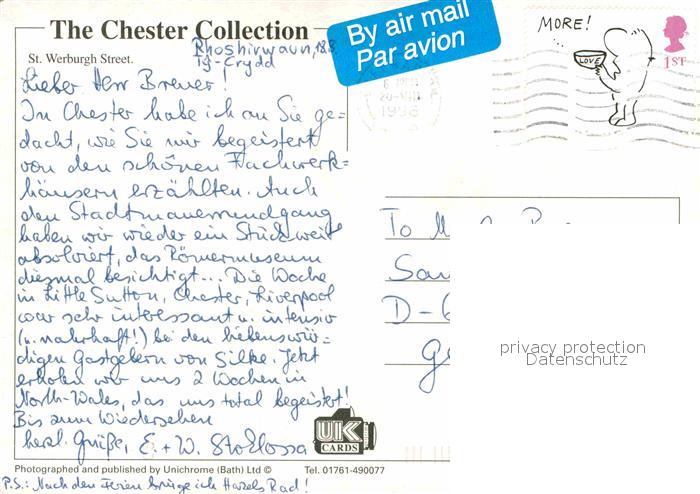 The Chester Collection
By air mail
Par avion
MORE!
LOVE
1ST
St. Werburgh Street.
Rhoshirwaun, 18.8.
Tŷ-Crydd
Lieber Herr Brewer!
In Chester habe ich an Sie ge-
dacht, wie Sie mir begeistert
von den schönen Fachwerk=
häusern erzählten. Auch
den Stadtmauerrundgang
haben wir wieder ein Stück weit
absolviert, das Römermuseum
diesmal besichtigt... Die Woche
in Little Sutton, Chester, Liverpool
war sehr interessant u. intensiv
(u. nahrhaft!) bei den liebenswür=
digen Gastgebern von Silke. Jetzt
erholen wir uns 2 Wochen in
North-Wales, das uns total begeistert!
Bis zum Wiedersehen
herzl. Grüße, E. + W. Stoklossa
To M
San
D-6
Ge
privacy protection
Datenschutz
UK
CARDS
Photographed and published by Unichrome (Bath) Ltd © Tel. 01761-490077
P.S.: Nach den Ferien bringe ich Hazels Rad!